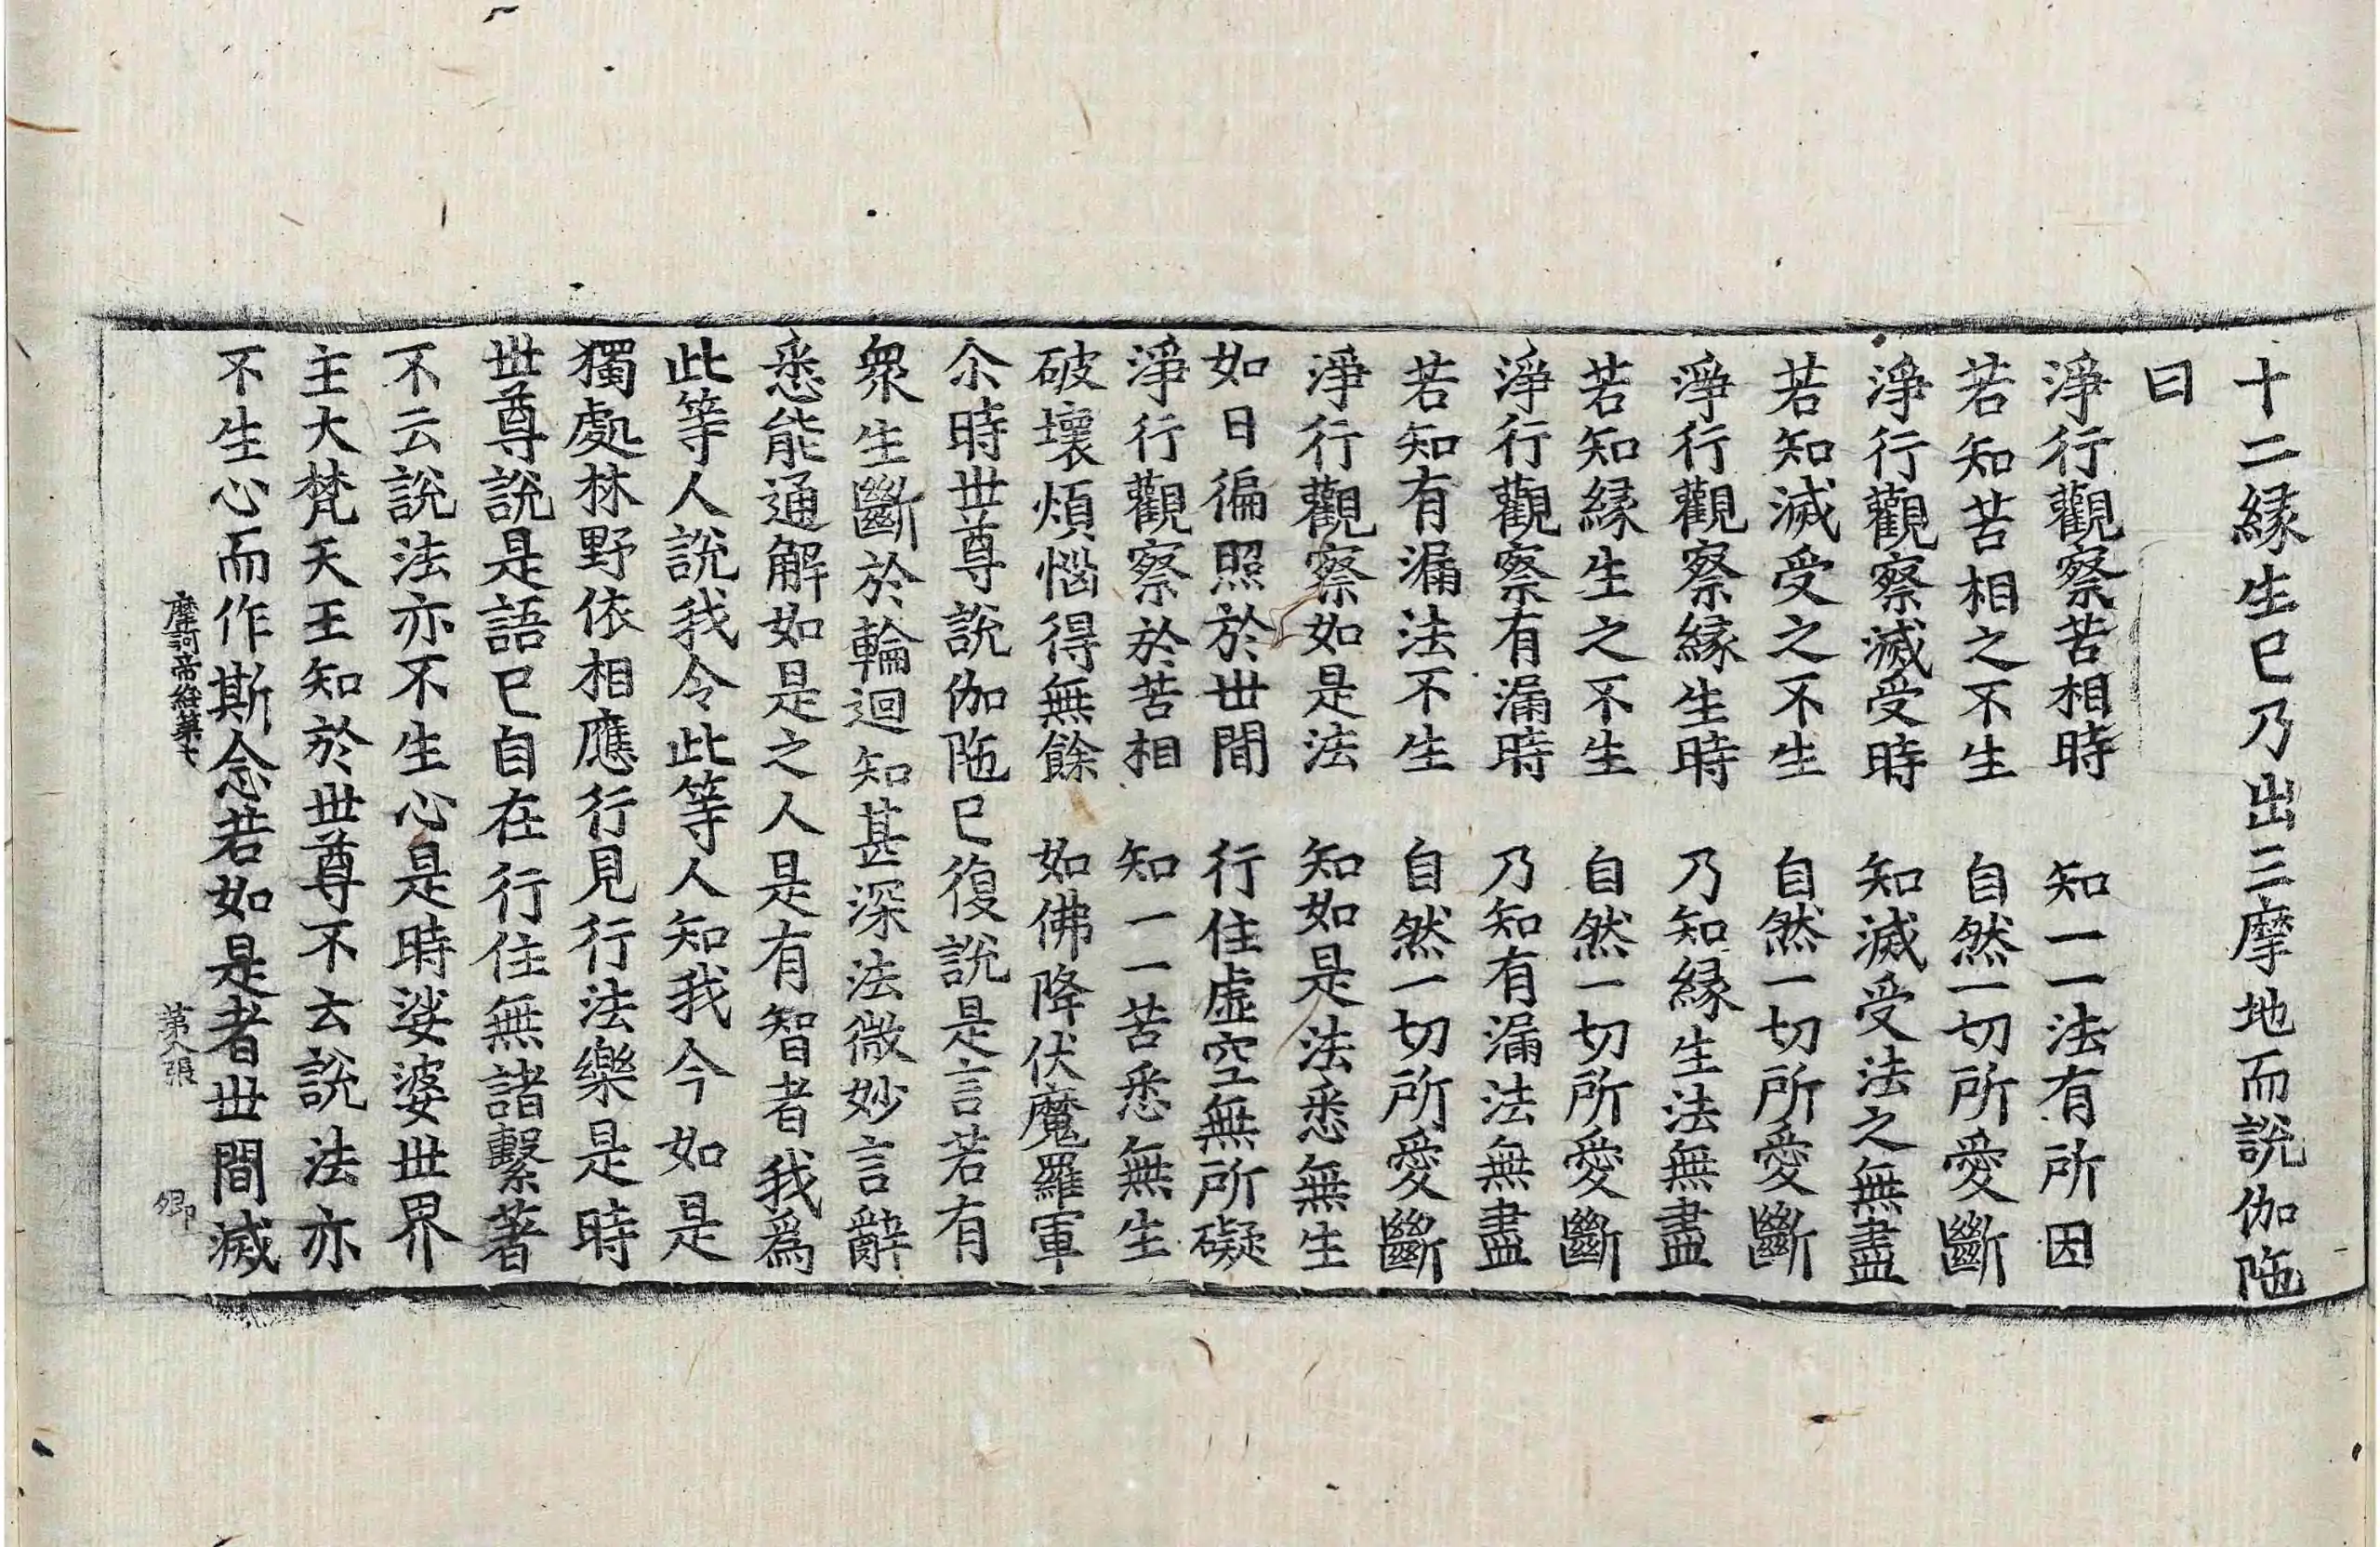 十二縁生已乃出三摩地而說伽陁
曰
淨行觀察苦相時　知一一法有所因
若知苦相之不生　自然一切所愛斷
淨行觀察滅受時　知滅受法之無盡
若知滅受之不生　自然一切所愛斷
淨行觀察縁生時　乃知縁生法無盡
若知縁生之不生　自然一切所愛斷
淨行觀察有漏時　乃知有漏法無盡
若知有漏法不生　自然一切所愛斷
淨行觀察如是法　知如是法悉無生
如日徧照於世間　行住虛空無所礙
淨行觀察於苦相　知一一苦悉無生
破壞煩惱得無餘　如佛降伏魔羅軍
尒時世尊說伽陁已復說是言若有
衆生斷於輪迴知甚深法微妙言辭
悉能通解如是之人是有智者我爲
此等人說我令此等人知我今如是
獨處林野依相應行見行法樂是時
世尊說是語已自在行住無諸繫著
不云說法亦不生心是時娑婆世界
主大梵天王知於世尊不云說法亦
不生心而作斯念若如是者世間滅
摩訶帝經第七　張　卿